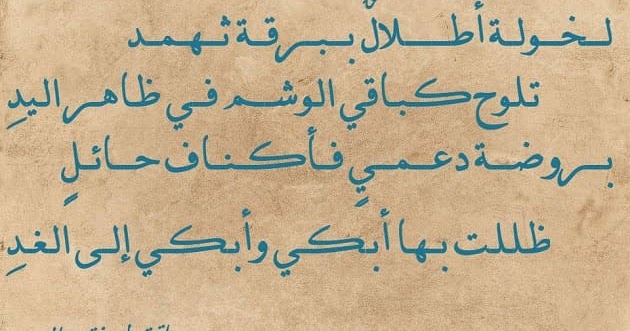 لخولة أطلالٌ ببرقة ثهمد
تلوح كباقي الوشم في ظاهر اليدِ
بروضة دعميٍ فأكناف حائلٍ
ظللت بها أبكي وأبكي إلى الغدِ